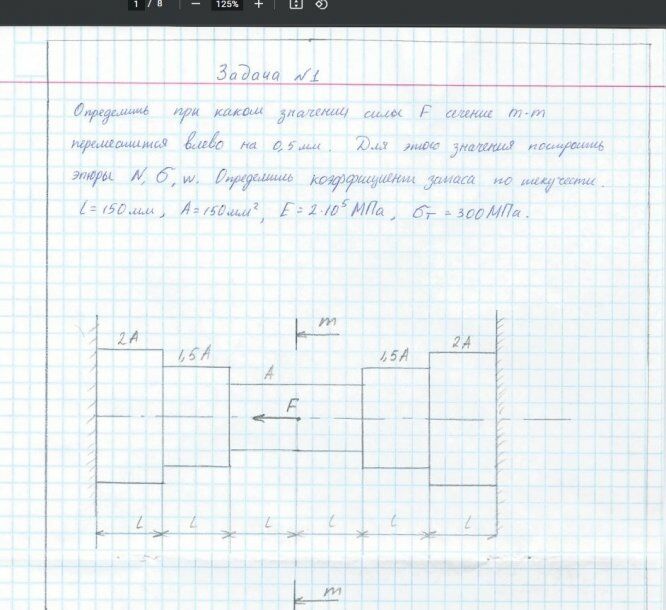 1 / 8
125%
Задача №1
Определить при каком значении силы F сечение m-m
переместится влево на 0,5 мм. Для этого значения построить
эпюры N, σ, w. Определить коэффициент запаса по текучести.
l = 150 мм, A = 150 мм², E = 2·10⁵ МПа, σт = 300 МПа.
m
2A
1,5A
A
1,5A
2A
F
l
l
l
l
l
l
m